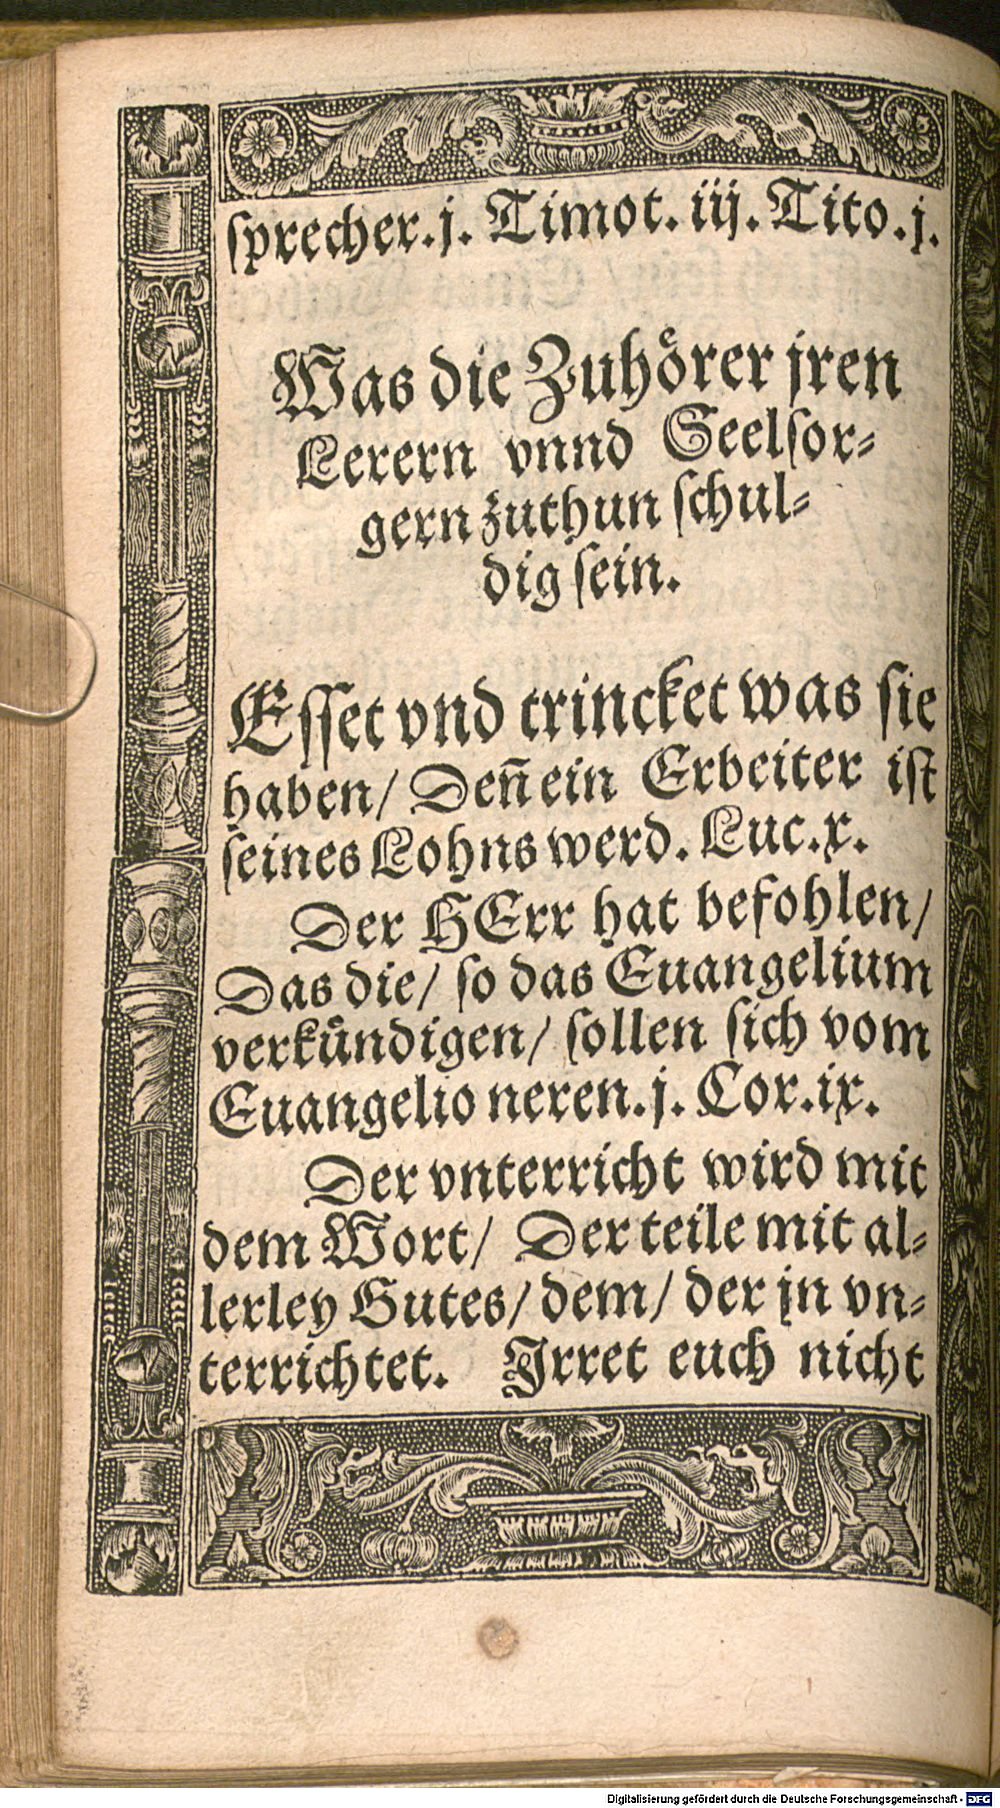 ſprecher.j. Timot. iij. Tito. j.
Was die Zuhoͤrer jren
Lerern vnnd Seelſor⸗
gern zuthun ſchul⸗
dig ſein.
Eſſet vnd trincket was ſie
haben/ Deñ ein Erbeiter iſt
ſeines Lohns werd. Luc.x.
Der HErr hat befohlen/
Das die/ ſo das Euangelium
verkuͤndigen/ ſollen ſich vom
Euangelio neren.j. Cor.ix.
Der vnterricht wird mit
dem Wort/ Der teile mit al⸗
lerley Gutes/ dem/ der jn vn⸗
terrichtet. Jrret euch nicht
Digitalisierung gefördert durch die Deutsche Forschungsgemeinschaft - DFG